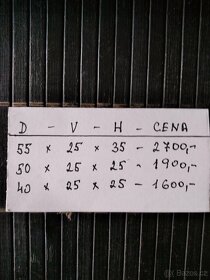 D - V - H - CENA
55 x 25 x 35 - 2700,-
50 x 25 x 25 - 1900,-
40 x 25 x 25 - 1600,-
Bazoš.cz